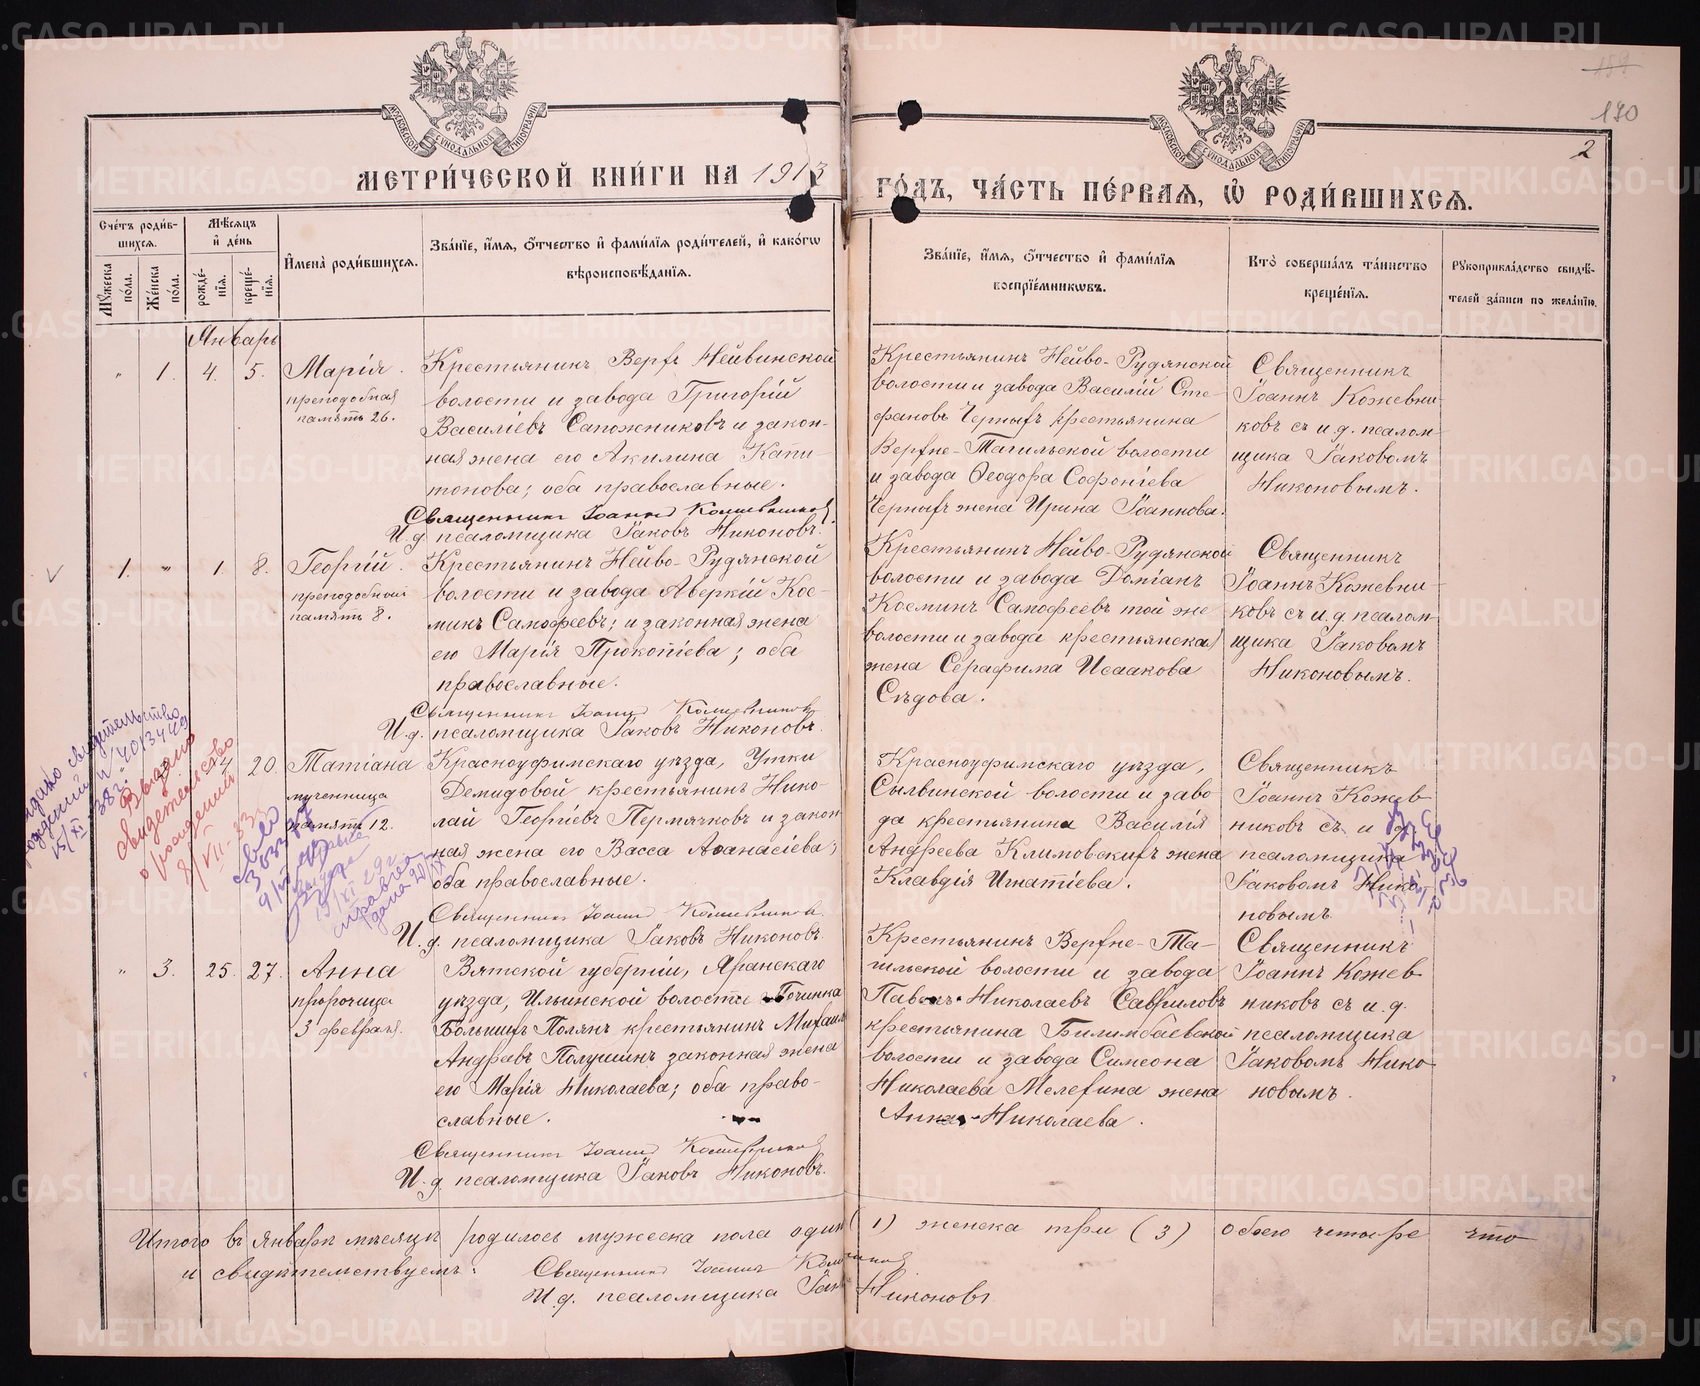 189
170
2
МОСКОВСКОЙ СѴНОДАЛЬНОЙ ТИПОГРАФІИ
МОСКОВСКОЙ СѴНОДАЛЬНОЙ ТИПОГРАФІИ
МЕТРИ́ЧЕСКОЙ КНИ́ГИ НА 1913
ГО́ДЪ, ЧА́СТЬ ПЕ́РВАЯ, Ѡ РОДИ́ВШИХСЯ.
Сче́тъ роди́в-
шихся.
Мꙋ́жеска по́ла.
Же́нска по́ла.
Мѣ́сяцъ
и де́нь
рожде́-
нїя.
креще́-
нїя.
Имена̀ роди́вшихся.
Зва́нїе, и́мя, о́тчество и фами́лїя роди́телей, и како́гѡ
вѣроисповѣ́данїя.
Зва́нїе, и́мя, о́тчество и фами́лїя
воспрїе́мникѡвъ.
Кто̀ соверша́лъ та́инство
креще́нїя.
Рꙋкоприкла́дство свидѣ́-
телей за́писи по жела́нїю.
Январь
„ 1. 4. 5.
Марія.
преподобная
память 26.
Крестьянинъ Верхъ Нейвинской
волости и завода Григорій
Василіевъ Сапожниковъ и закон-
ная жена его Акилина Капи-
тонова; оба православные.
Священникъ Іоаннъ Кожевниковъ.
И. д. псаломщика Іаковъ Никоновъ.
Крестьянинъ Нейво-Рудянской
волости и завода Василій Сте-
фановъ Черныхъ крестьянина
Верхне-Тагильской волости
и завода Ѳеодора Софоніева
Черныхъ жена Ирина Іоаннова.
Священникъ
Іоаннъ Кожевни-
ковъ съ и. д. псалом-
щика Іаковомъ
Никоновымъ.
1. „ 1. 8.
Георгій.
преподобный
память 8.
Крестьянинъ Нейво-Рудянской
волости и завода Аверкій Кос-
минъ Самофеевъ; и законная жена
его Марія Прокопіева; оба
православные.
Священникъ Іоаннъ Кожевниковъ
И. д. псаломщика Іаковъ Никоновъ.
Крестьянинъ Нейво-Рудянской
волости и завода Даміанъ
Косминъ Самофеевъ той же
волости и завода крестьянская
жена Серафима Исаакова
Сѣдова.
Священникъ
Іоаннъ Кожевни-
ковъ съ и. д. псалом-
щика Іаковомъ
Никоновымъ.
20.
Татіана
мученница
память 12.
Красноуфимскаго уѣзда, Утки
Демидовой крестьянинъ Нико-
лай Георгіевъ Пермячковъ и закон
ная жена его Васса Аѳанасіева;
оба православные.
Священникъ Іоаннъ Кожевниковъ.
И. д. псаломщика Іаковъ Никоновъ.
Красноуфимскаго уѣзда,
Сылвинской волости и заво
да крестьянина Василія
Андреева Климовскихъ жена
Клавдія Игнатіева.
Священникъ
Іоаннъ Кожев
никовъ съ и д.
псаломщика
Іаковомъ Нико-
новымъ
Выдано
свидетельство
о рождении
„ 3. 25. 27.
Анна
пророчица
3 февраля.
Вятской губерніи, Яранскаго
уѣзда, Ильинской волости Починка
Большихъ Полянъ крестьянинъ Михаилъ
Андреевъ Полушинъ законная жена
его Марія Николаева; оба право-
славные.
Священникъ Іоаннъ Кожевниковъ
И. д. псаломщика Іаковъ Никоновъ.
Крестьянинъ Верхне-Та-
гильской волости и завода
Павелъ Николаевъ Савриловъ
крестьянина Билимбаевской
волости и завода Симеона
Николаева Мелехина жена
Анна Николаева.
Священникъ
Іоаннъ Кожев
никовъ съ и. д.
псаломщика
Іаковомъ Нико-
новымъ.
Итого въ Январѣ мѣсяцѣ родилось мужеска пола одинъ (1) женска три (3) обоего четыре что
и свидѣтельствуемъ:
Священникъ Іоаннъ Кожевниковъ
И. д. псаломщика Іаковъ Никоновъ
METRIKI.GASO-URAL.RU